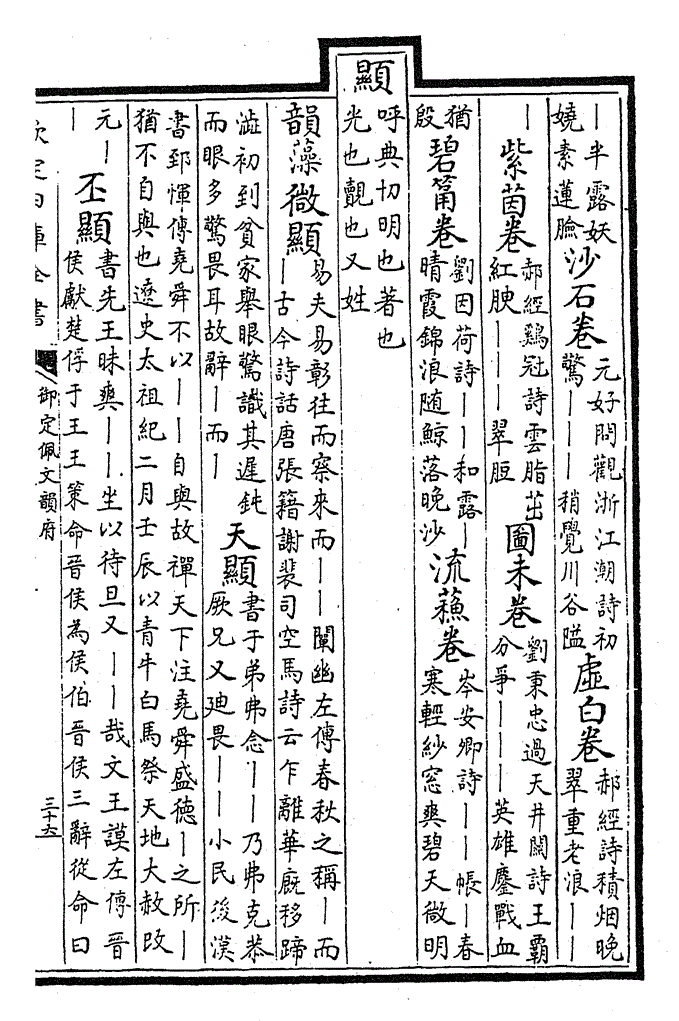 ｜半露妖
嬈素蓮臉
沙石卷
元好問觀浙江潮詩初
驚｜｜｜稍覺川谷隘
虛白卷
郝經詩積烟晚
翠重老浪｜｜
｜
紫茵卷
郝經鷄冠詩雲脂茁
紅腴｜｜｜翠脰
圖未卷
劉秉忠過天井關詩王霸
分爭｜｜｜英雄鏖戰血
猶
殷
碧筩卷
劉因荷詩｜｜和露｜
晴霞錦浪随鯨落晚沙
流蘓卷
岑安卿詩｜｜帳｜春
寒輕紗窓爽碧天微明
顯
呼典切明也著也
光也覿也又姓
韻藻
微顯
易夫易彰往而察來而｜｜闡幽左傳春秋之稱｜而
｜古今詩話唐張籍謝裴司空馬詩云乍離華廐移蹄
澁初到貧家舉眼驚識其遲鈍
而眼多驚畏耳故辭｜而｜
天顯
書于弟弗念｜｜乃弗克恭
厥兄又廸畏｜｜小民後漢
書郅惲傳堯舜不以｜｜自與故禪天下注堯舜盛德｜之所｜
猶不自與也遼史太祖紀二月壬辰以青牛白馬祭天地大赦改
元｜
｜
丕顯
書先王昧爽｜｜坐以待旦又｜｜哉文王謨左傳晉
侯獻楚俘于王王策命晉侯為侯伯晉侯三辭從命曰
欽定四庫全書
御定佩文韻府
三十六